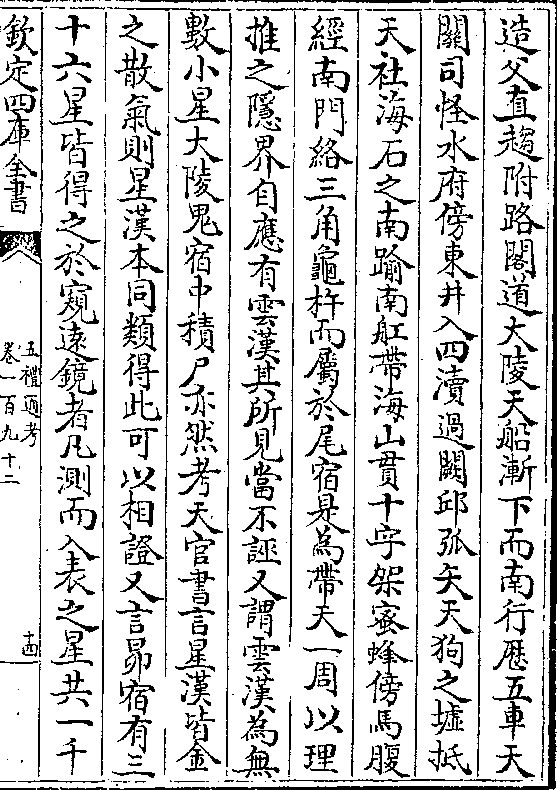 造父直趨附路閣道大陵天船漸下而南行歷五車天
關司怪水府傍東井入四瀆過闕邱弧矢天狗之墟抵
天社海石之南踰南舡帶海山貫十字架蜜蜂傍馬腹
經南門絡三角龜杵而屬於尾宿是為帶天一周以理
推之隱界自應有雲漢其所見當不誣又謂雲漢為無
數小星大陵鬼宿中積尸亦然考天官書言星漢皆金
之散氣則星漢本同類得此可以相證又言昴宿有三
十六星皆得之於窺遠鏡者凡測而入表之星共一千
欽定四庫全書
五禮通考
卷一百九十二
十四